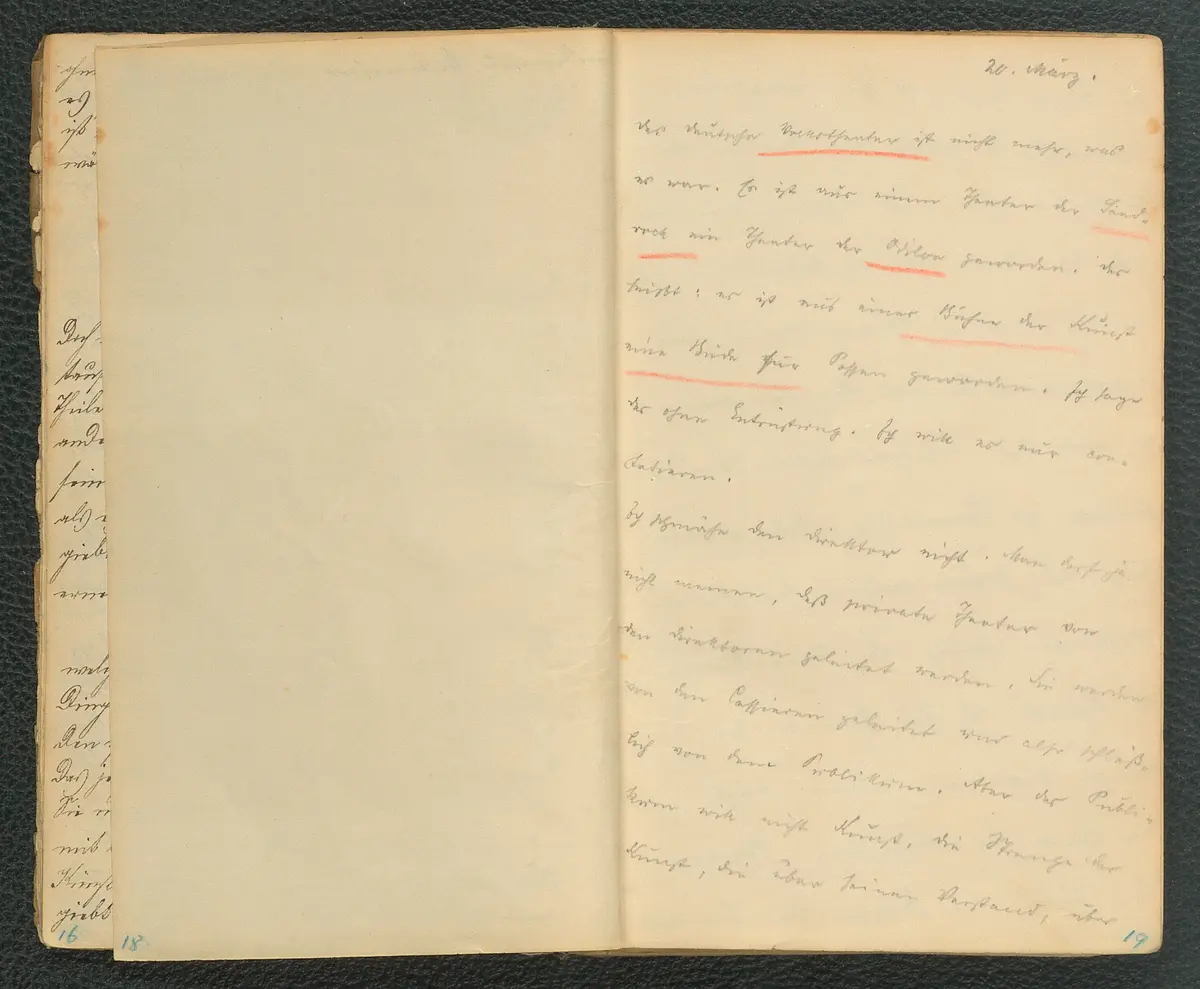 ist
Doch
Theile
ande
sein
als
gieb
erne
welch
Ding
Den
Das
mit
Künst
giebt
16
18
20. März.
das deutsche Volkstheater ist nicht mehr, was
es war. Er ist aus einem Theater der Sand-
rock ein Theater der Odilon geworden. das
heißt: es ist aus einer Bühne der Kunst
eine Bude für Possen geworden. Ich sage
das ohne Entrüstung. Ich will es nur con-
statieren.
Ich schmähe den Direktor nicht. Man darf ja
nicht meinen, daß private Theater von
den Direktoren geleitet werden. Sie werden
von den Cassieren geleitet und also schließ-
lich von dem Publikum. Aber das Publi-
kum will nicht Kunst, die Strenge der
Kunst, die über seinen Verstand, über
19